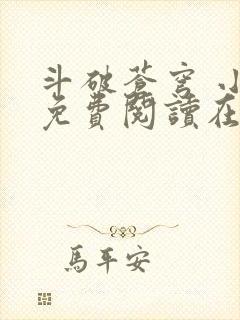 斗破蒼穹 小
免費閱讀在
馬平安